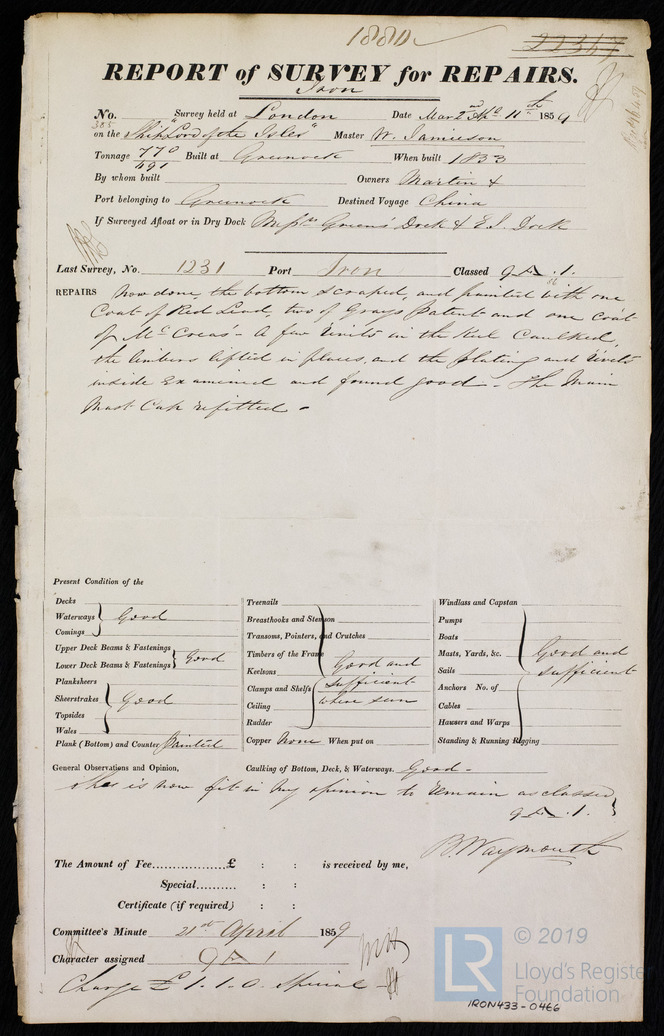 1880
22367
REPORT of SURVEY for REPAIRS.
Iron
No. 385 Survey held at London Date Mar 2nd Ap 11th 1859
on the Ship "Lord of the Isles" Master W. Jamieson
Tonnage 770 Built at Greenock When built 1853
691
By whom built Owners Martin &
Port belonging to Greenock Destined Voyage China
If Surveyed Afloat or in Dry Dock Messrs Greens' Dock & E.I. Dock
Last Survey, No. 1231 Port Iron Classed 9 A 1.
REPAIRS Now done, the bottom scraped, and painted with one
Coat of Red Lead, two of Grays Patent and one coat
of McCreas' - A few Rivets in the Keel Caulked,
the timbers lifted in places, and the plating and Rivets
inside Examined and found good - The Main
Mast Cap refitted -
Present Condition of the
Decks
Waterways Good
Comings
Upper Deck Beams & Fastenings
Lower Deck Beams & Fastenings Good
Planksheers
Sheerstrakes Good
Topsides
Wales
Plank (Bottom) and Counter Painted
Treenails
Breasthooks and Stemson
Transoms, Pointers, and Crutches
Timbers of the Frame
Keelsons Good and
Clamps and Shelfs sufficient
Ceiling where seen
Rudder
Copper None When put on
Windlass and Capstan
Pumps
Boats
Masts, Yards, &c. Good and
Sails sufficient
Anchors No. of
Cables
Hawsers and Warps
Standing & Running Rigging
General Observations and Opinion, Caulking of Bottom, Deck, & Waterways. Good -
She is now fit in my opinion to remain as classed
9 A 1.
B. Waymouth
The Amount of Fee..................£ : : is received by me,
Special.......... : :
Certificate (if required) : :
Committee's Minute 21st April 1859
Character assigned 9 A 1
Charge £ 1.1.0 Special
LR
© 2019
Lloyd's Register
Foundation
IRON433-0466